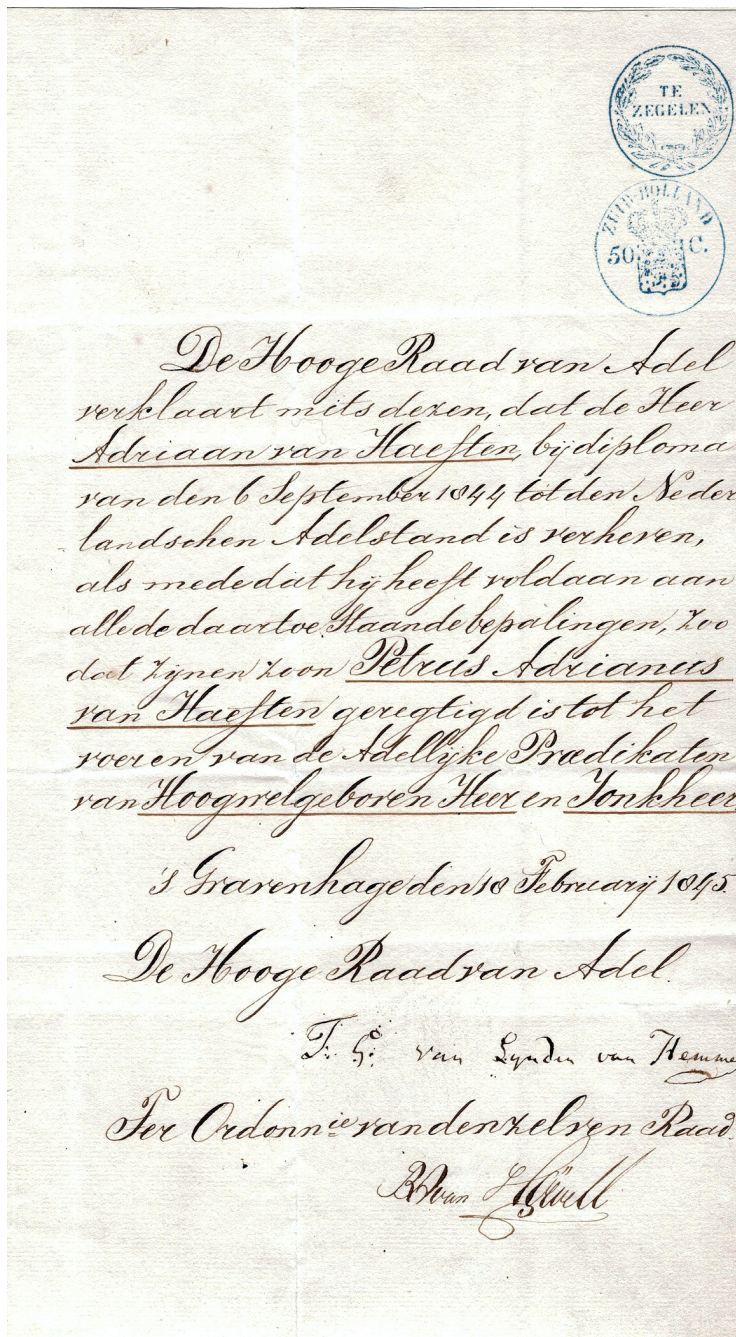 TE
ZEGELEN
ZUID-HOLLAND
50 C.
De Hooge Raad van Adel
verklaart mits dezen, dat de Heer
Adriaan van Haeften, bij diploma
van den 6 September 1844 tot den Neder
landschen Adelstand is verheven,
als mede dat hij heeft voldaan aan
alle de daartoe staande bepalingen, zoo
dat zijnen zoon Petrus Adrianus
van Haeften geregtigd is tot het
voeren van de Adellijke Prædikaten
van Hoogwelgeboren Heer en Jonkheer
's Gravenhage den 18 February 1845.
De Hooge Raad van Adel.
F. G. van Lynden van Hemme
Ter Ordonnie van denzelven Raad.
van